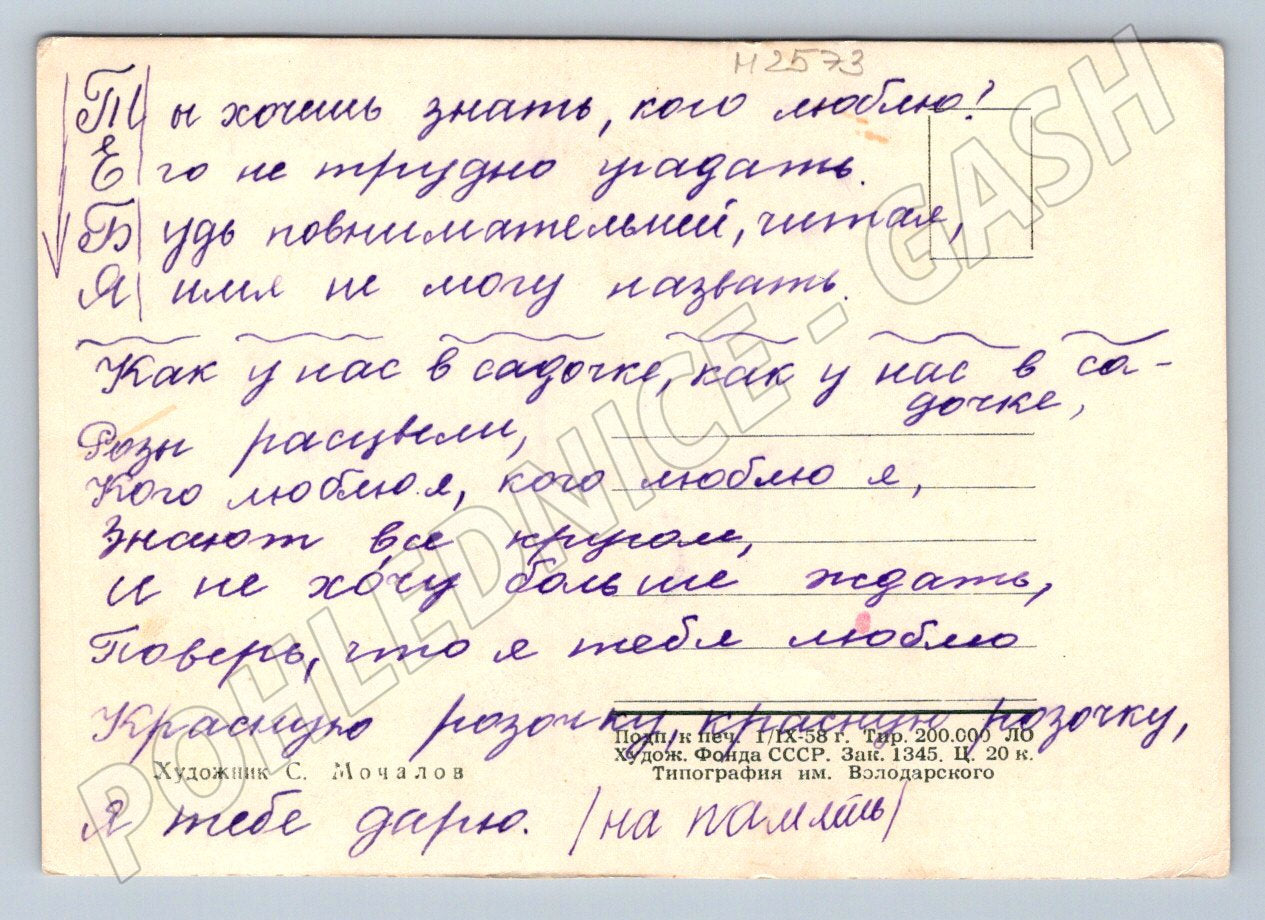 М 2573
Ты хочешь знать, кого люблю?
Его не трудно угадать.
Будь повнимательней, читая,
Я имя не могу назвать.
Как у нас в садочке, как у нас в са-
дочке,
Розы расцвели,
Кого люблю я, кого люблю я,
Знают все кругом,
и не хочу больше ждать,
Поверь, что я тебя люблю
Красную розочку, красную розочку,
Подп. к печ. 1/IX-58 г. Тир. 200.000 ЛО
Худож. Фонда СССР. Зак. 1345. Ц. 20 к.
Типография им. Володарского
Художник С. Мочалов
Я тебе дарю. /на память/
POHLEDNICE - GASH